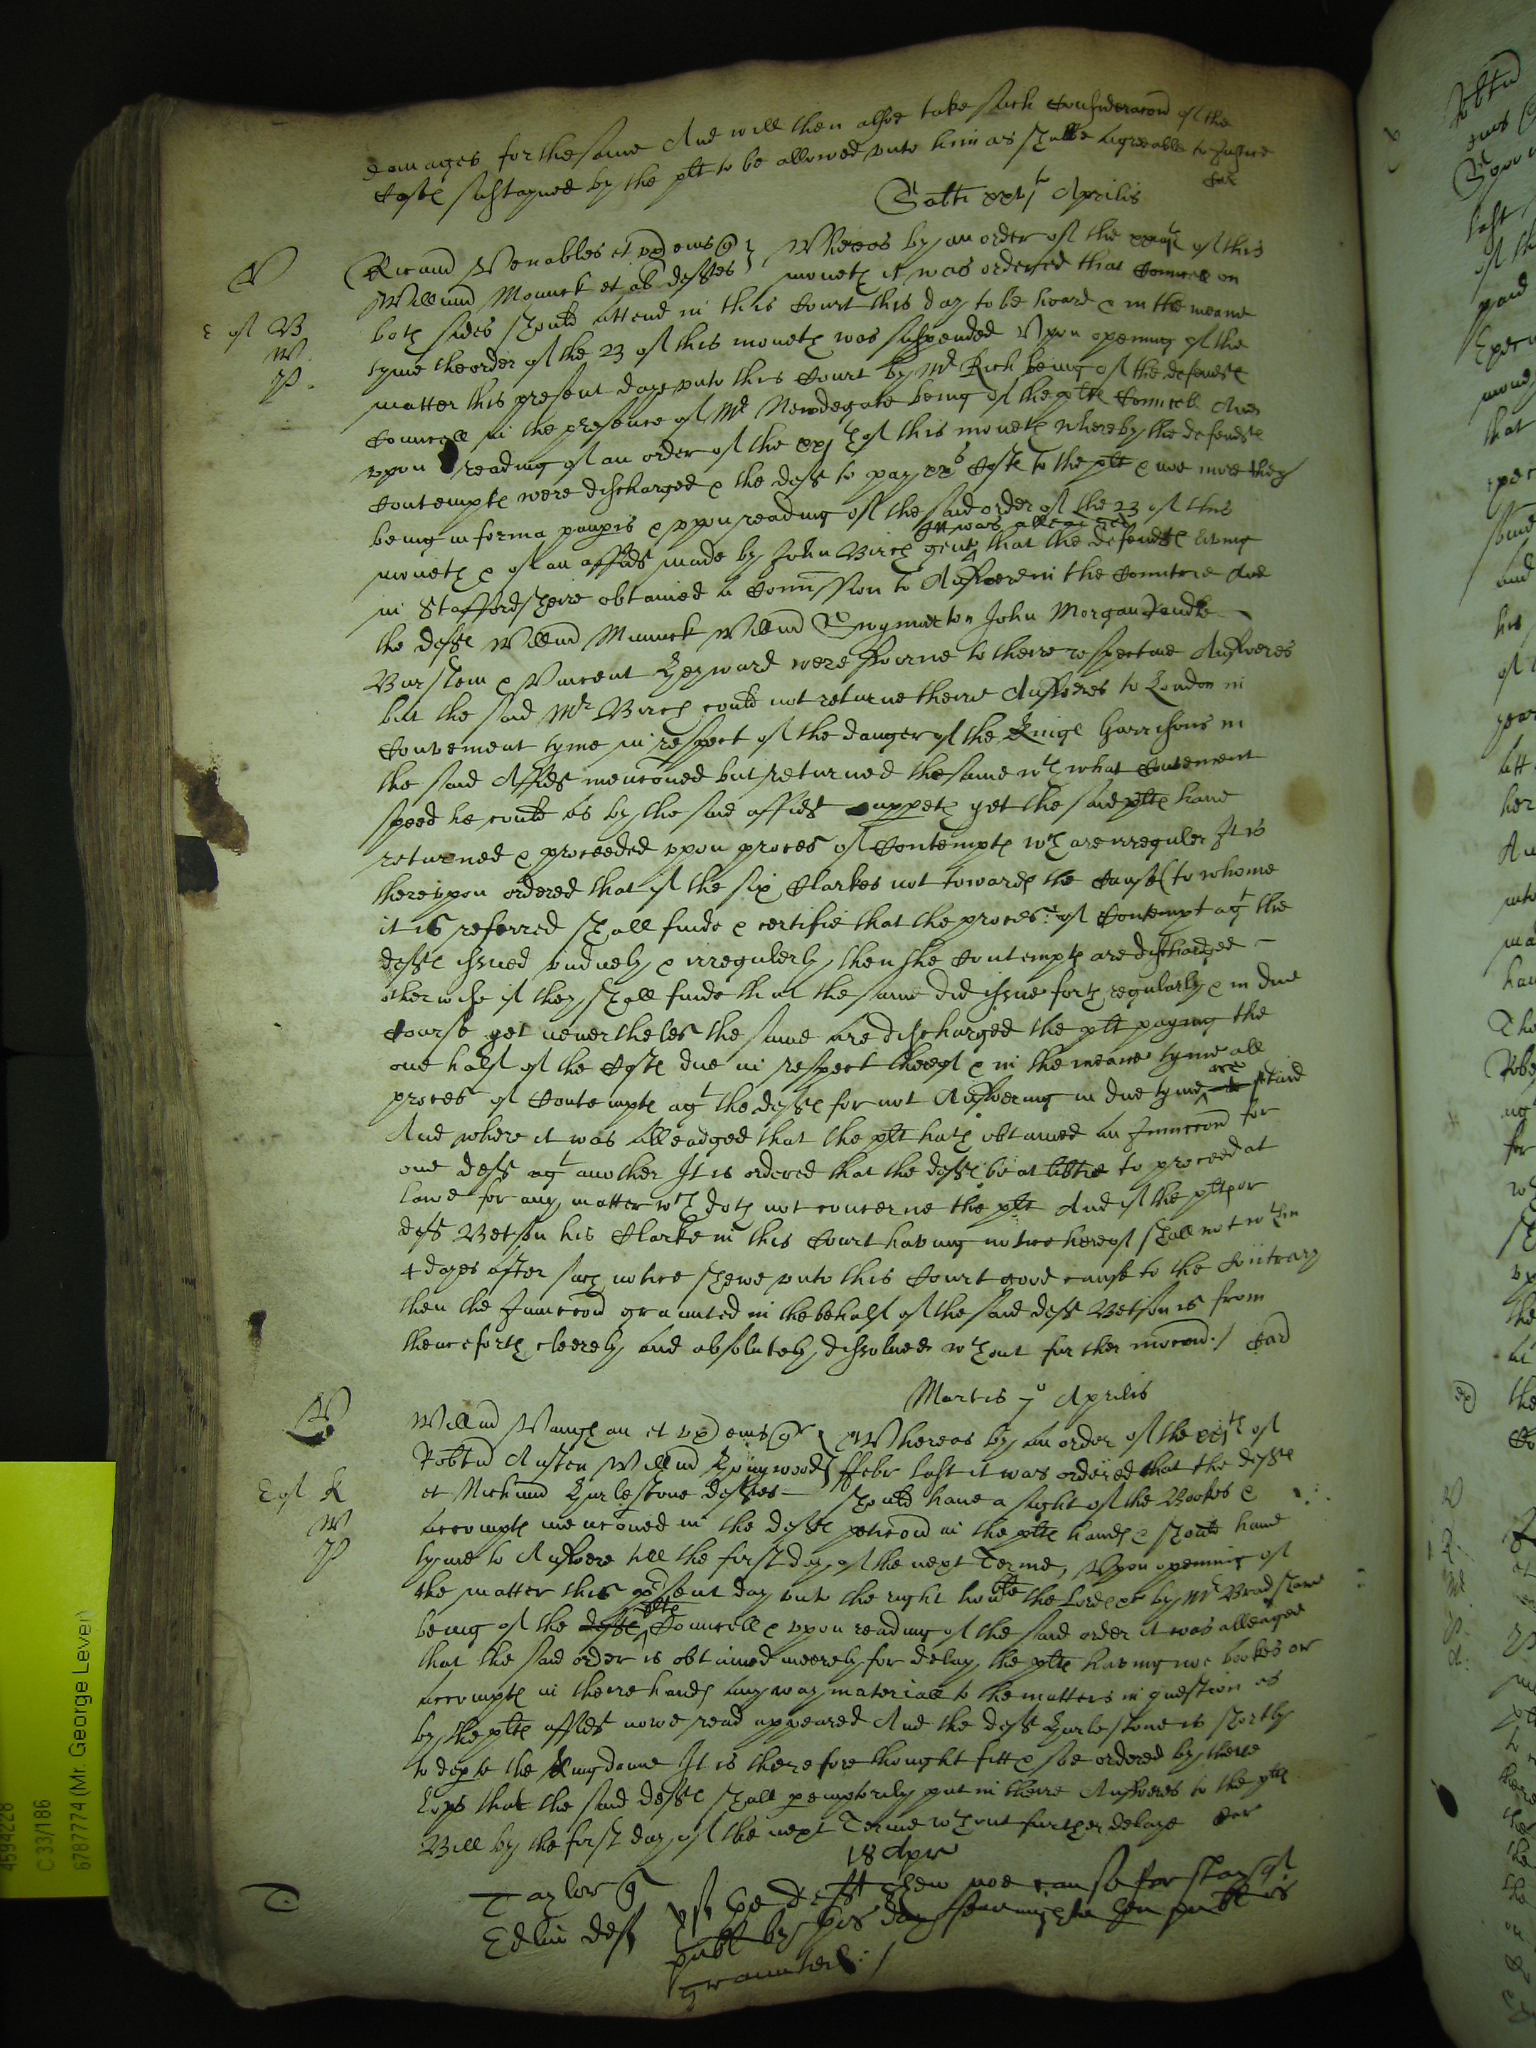 damages for the same And will then alsoe take such Consideracon of the
Costs sustayned by the plt to be allowed unto him as shalbe agreeable to Justice
Car
Sabti xxvj to Aprilis
V
Ricaud Venables et ux quer
Willmd Minnick et al defftes
Whereas by an order of the of this
moneth it was ordered that Councell on
E of B
both sides should attend in this Court this day to be heard & in the meane
W.
tyme the order of the 23 of this moneth was suspended Upon openinge of the
P.
matter this present daye unto this Court by Mr Rich being of the defendts
Councell in the presence of Mr Newdegate being of the plts Councell And
upon reading of an order of the xxj th of this moneth whereby the defendts
Contempts were discharged & the deft to pay xx s Costs to the plt & noe more they
being in forma paupis & upon reading of the said order of the 23 of this
it was alleadged
moneth & of an affidt made by John Birch gent that the defendts living
in Staffordsheire obtained a Comission to Answere in the Countrie And
the defts Willmd Minnick Willmd John Morgan Randle
Burslem & Vincent Heyward were sworne to theire respective Answeres
but the said Mr Birch could not returne theire Answeres to London in
Convenient tyme in respect of the danger of the Kings Garrisons in
the said Affidt mencioned but returned the same wth what Convenient
speed he could as by the said affidt appeth yet the said plts have
returned & proceeded upon proces of Contempts wch are irreguler It is
thereupon ordered that if the six Clarkes not towards the Cause (to whome
it is referred shall finde & certifie that the proces of Contempt agt the
defts issued unduely & irregulerly, then the Contempts are discharged
otherwise if they shall finde that the same did issue forth regularly & in due
Course yet nevertheles the same are discharged the plt paying the
one half of the Costs due in respect thereof & in the meane tyme all
are
proces of Contempts agt the defts for not Answering in due tyme staied
And where it was alleadged that the plt hath obtained an Iniunccon for
one deft agt another It is ordered that the defts be at libtie to proceed at
lawe for any matter wch doth not concerne the plt And if the plt or
deft Betson his Clarke in this Court having notice hereof shall not wthin
4 dayes after such notice shewe unto this Court good cause to the Contrary
then the Iniunccon graunted in the behalf of the said deft Betson is from
thenceforth cleerely and absolutely dissolved wthout further mocion:/ Card
Martis 7o Aprilis
V
Willmd Vaughan et ux quer
Robtud Austen Willmd Hopwood
E of K
et Nichaud Hurlestone defftes
Whereas by an order of the xxjth of
ffebr last it was ordered that the defts
should have a sight of the Bookes &
W
accompts mencioned in the defts peticon in the plts hands & should have
P
tyme to Answere till the first day of the next Terme, Upon openinge of
the matter this present day unto the right hoble the Lords &c by Mr Bradshawe
plts
being of the defts Councell & upon reading of the said order it was alleaged
that the said order is obtained meerely for delay, the plts having noe bookes or
accompts in theire hands any way materiall to the matters in question as
by the plts affidt nowe read appeared And the deft Hurlestone is shortly
to depte the Kingdome It is therefore thought fitt & soe ordered by theire
Lopps that the said defts shall peremptorily put in theire Answeres to the plts
Bill by the first day of the next Terme wthout further delaye Car
18 Apr
T
Taylor q
Edlin deft
yf the deft shew noe cause for stay of
publ by this day seavenight then publ is
graunted:/
4594228
C 33/186
6787774 (Mr. George Lever)